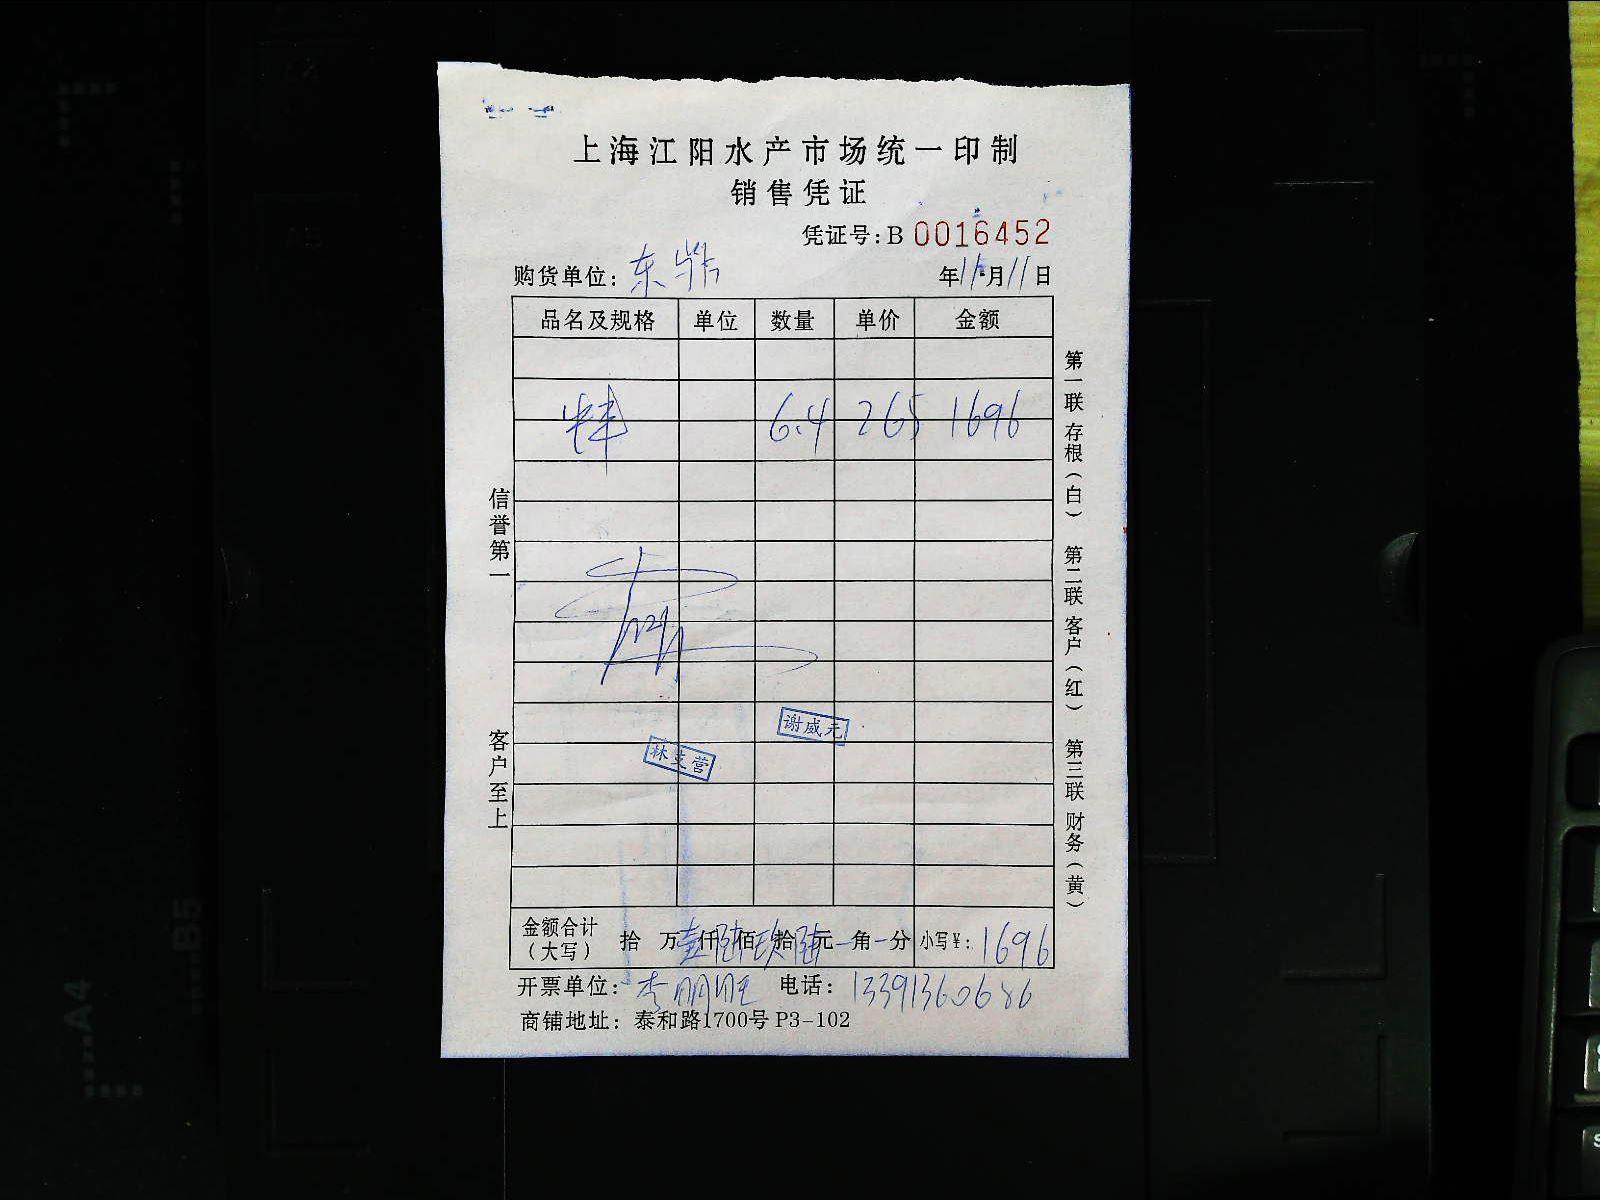 上海江阳水产市场统一印制
销售凭证
凭证号:B 0016452
购货单位: 东 年11月11日
品名及规格 单位 数量 单价 金额
6.4 265 1696
信誉第一
客户至上
第一联 存根(白) 第二联 客户(红) 第三联 财务(黄)
谢威元
林支营
金额合计(大写) 拾 万壹仟陆佰玖拾陆元-角-分 小写¥: 1696
开票单位: 李明旺 电话: 13391360686
商铺地址: 泰和路1700号 P3-102